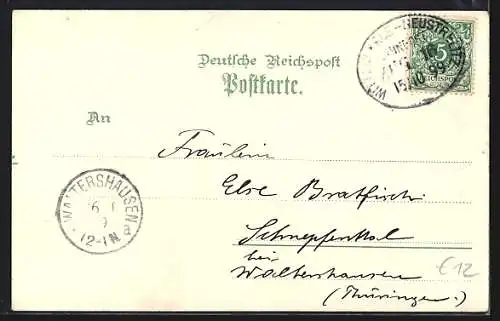 Deutsche Reichspost
Postkarte.
An
Fräulein
Else Bratfisch
Schnepfenthal
bei
Waltershausen
(Thüringen.)
WALTERSHAUSEN a
12-1N
NEUSTRELITZ
15 10 99
5
REICHSPOST
€12